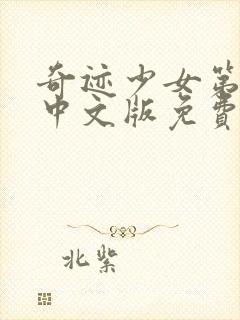 奇迹少女第
中文版免费
北紫